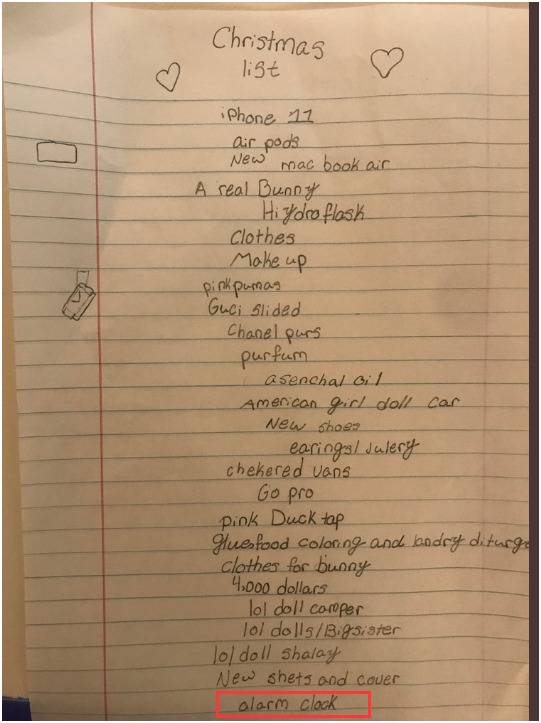 Christmas
list
iPhone 11
air pods
New mac book air
A real Bunny
Hydroflask
Clothes
Make up
pink pumas
Guci slided
Chanel purs
purfum
asenchal oil
American girl doll car
New shoes
earings/Julery
chekered vans
Go pro
pink Duck tap
glue food coloring and landry diturge
Clothes for bunny
4,000 dollars
lol doll camper
lol dolls/Bigsister
lol doll shalay
New shets and cover
alarm clock